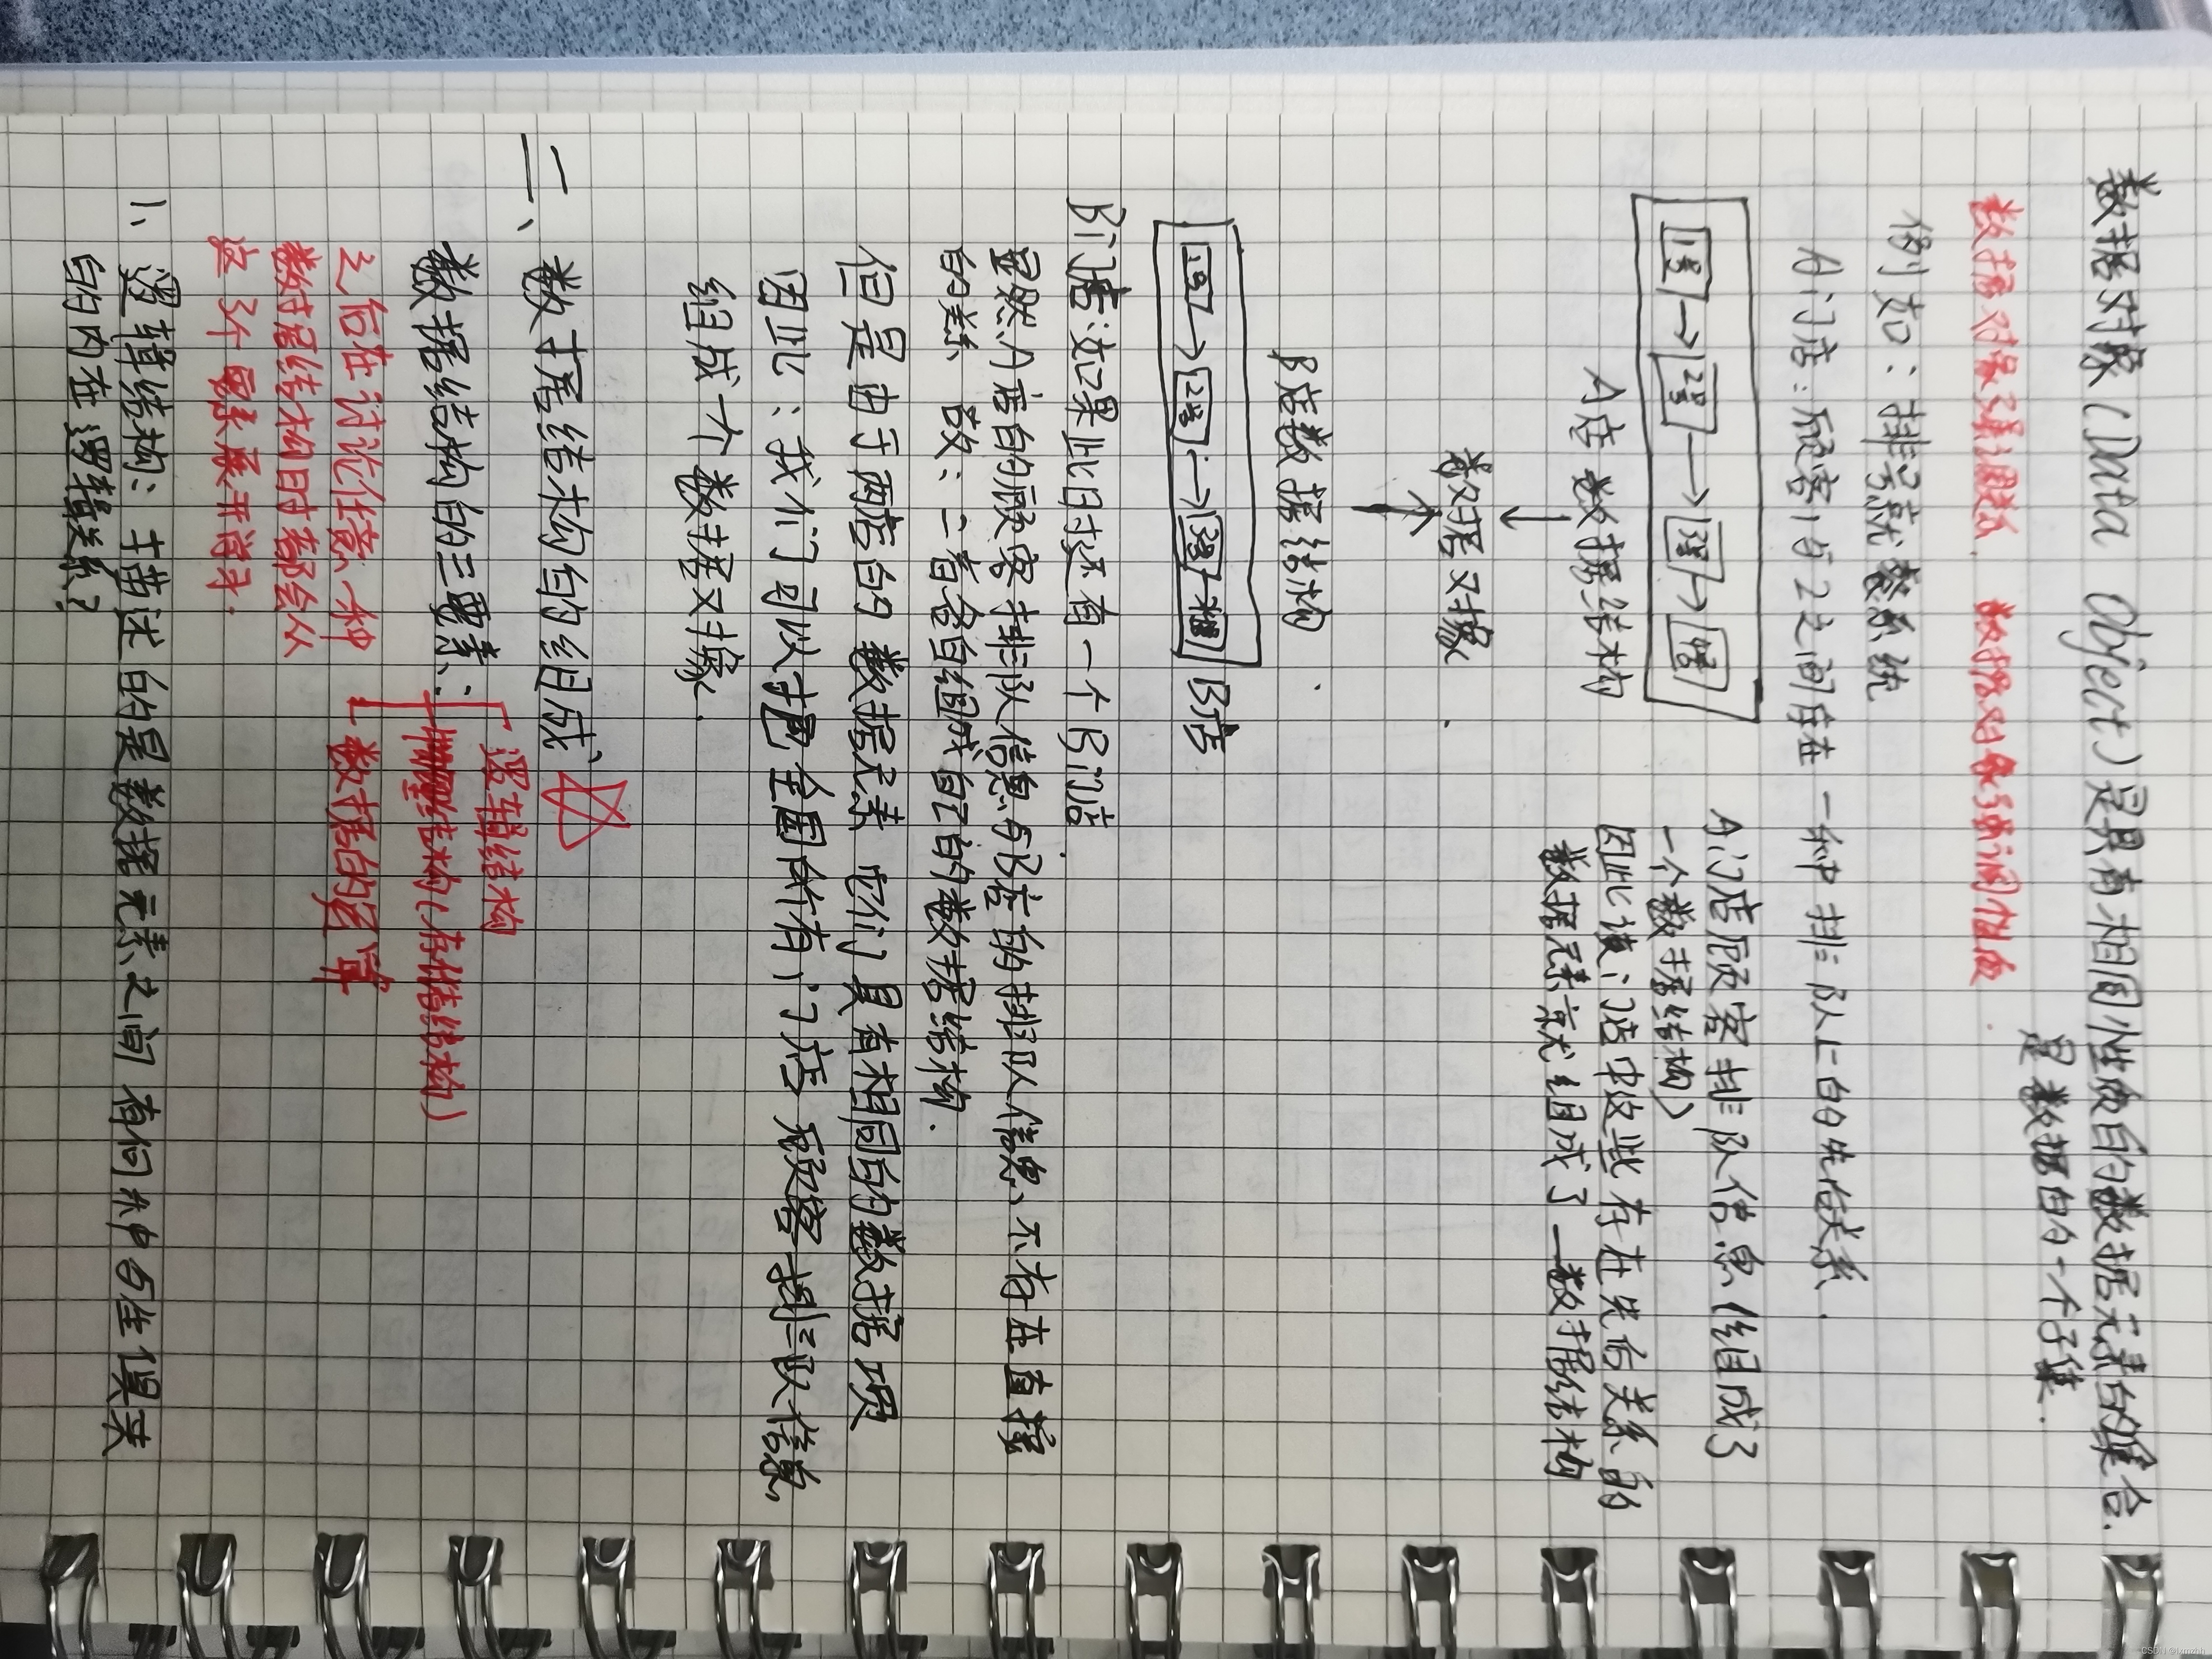 数据对象(Data Object)是具有相同性质的数据元素的集合.
是数据的一个子集.
数据对象强调 数据对象强调性质.
例如:排号就餐系统
A门店:顾客1与2之间存在一种排队上的先后关系.
1号→2号→3号→
A店数据结构
A门店顾客排队信息(组成了
一个数据结构)
因此该门店中这些存在先后关系的
数据元素就组成了一数据结构
↓
数据对象.
↑
B店数据结构.
1号→2号→3号 B店
B门店:如果此时还有一个B门店.
显然A店的顾客排队信息与B店的排队信息不存在直接
的关系 故:二者各自组成自己的数据结构.
但是由于两店的数据元素,它们具有相同的数据项
因此:我们可以把全国所有门店顾客排队信息,
组成一个数据对象.
二、数据结构的组成、
数据结构的三要素:
逻辑结构
结构(存储结构)
数据的运算
之后在讨论任意一种
数据结构时都会从
这3个要素展开学习.
1、逻辑结构:描述的是数据元素之间有何种
的内在逻辑关系?